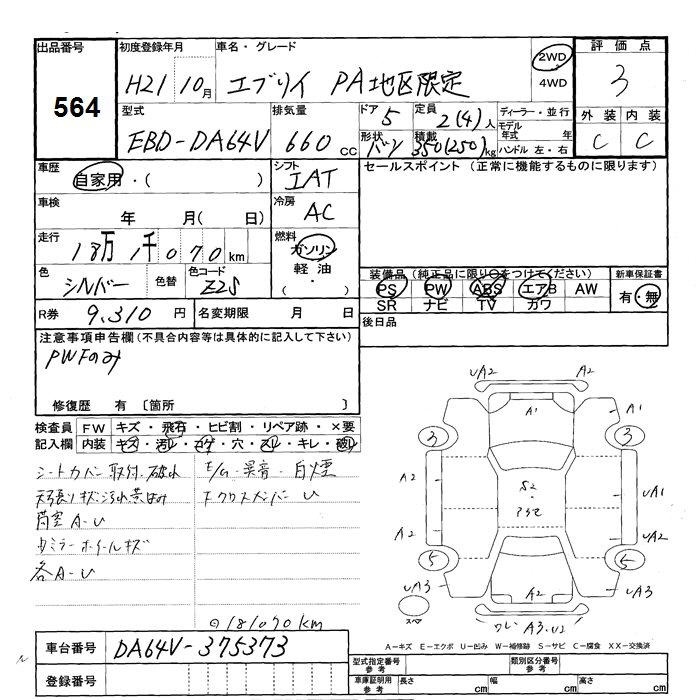 出品番号 初度登録年月 車名・グレード 評価点
564 H21 10月 エブリイ PA地区限定 2WD 4WD 3
型式 排気量 ドア 5 定員 2(4)人 ディーラー・並行 外装 内装
EBD-DA64V 660cc 形状 バン 積載 350(250)kg モデル年式 年 ハンドル 左・右 C C
車歴 シフト セールスポイント (正常に機能するものに限ります)
自家用・( ) IAT
車検 冷房
年 月( 日) AC
走行 燃料
18万1千070km ガソリン
色 色替 色コード 軽油 装備品 (純正品に限り○をつけてください) 新車保証書
シルバー Z2S ・( ) PS PW ABS エアB AW 有・無
SR ナビ TV カワ
R券 9,310円 名変期限 月 日 後日品
注意事項申告欄(不具合内容等は具体的に記入して下さい)
PWFのみ
修復歴 有 〔箇所 〕
検査員 FW キズ・飛石・ヒビ割・リペア跡・×要
記入欄 内装 キズ・汚レ・コゲ・穴・スレ・キレ・破レ
シートカバー取付・破れ E/G異音・白煙
天張りキズ汚れ黄ばみ Fクロスメンバー U
荷室 A-U
ミラーホイールキズ
各A-U
⊙181070km
UA2 A2
A1 A1
3 3
A2 S2 UA1
A2 UA2
5 5
UA3 A2 UA3
スペア ワレ A3.U2
A-キズ E-エクボ U-凹み W-補修跡 S-サビ C-腐食 XX-交換済
車台番号 DA64V-375373
登録番号
型式指定番号 参考 類別区分番号 参考
車庫証明用 参考 長さ cm 幅 cm 高さ cm